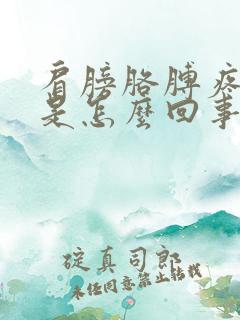 肩膀胳膊疼
是怎麼回事
碇真司郎
未经同意禁止转载